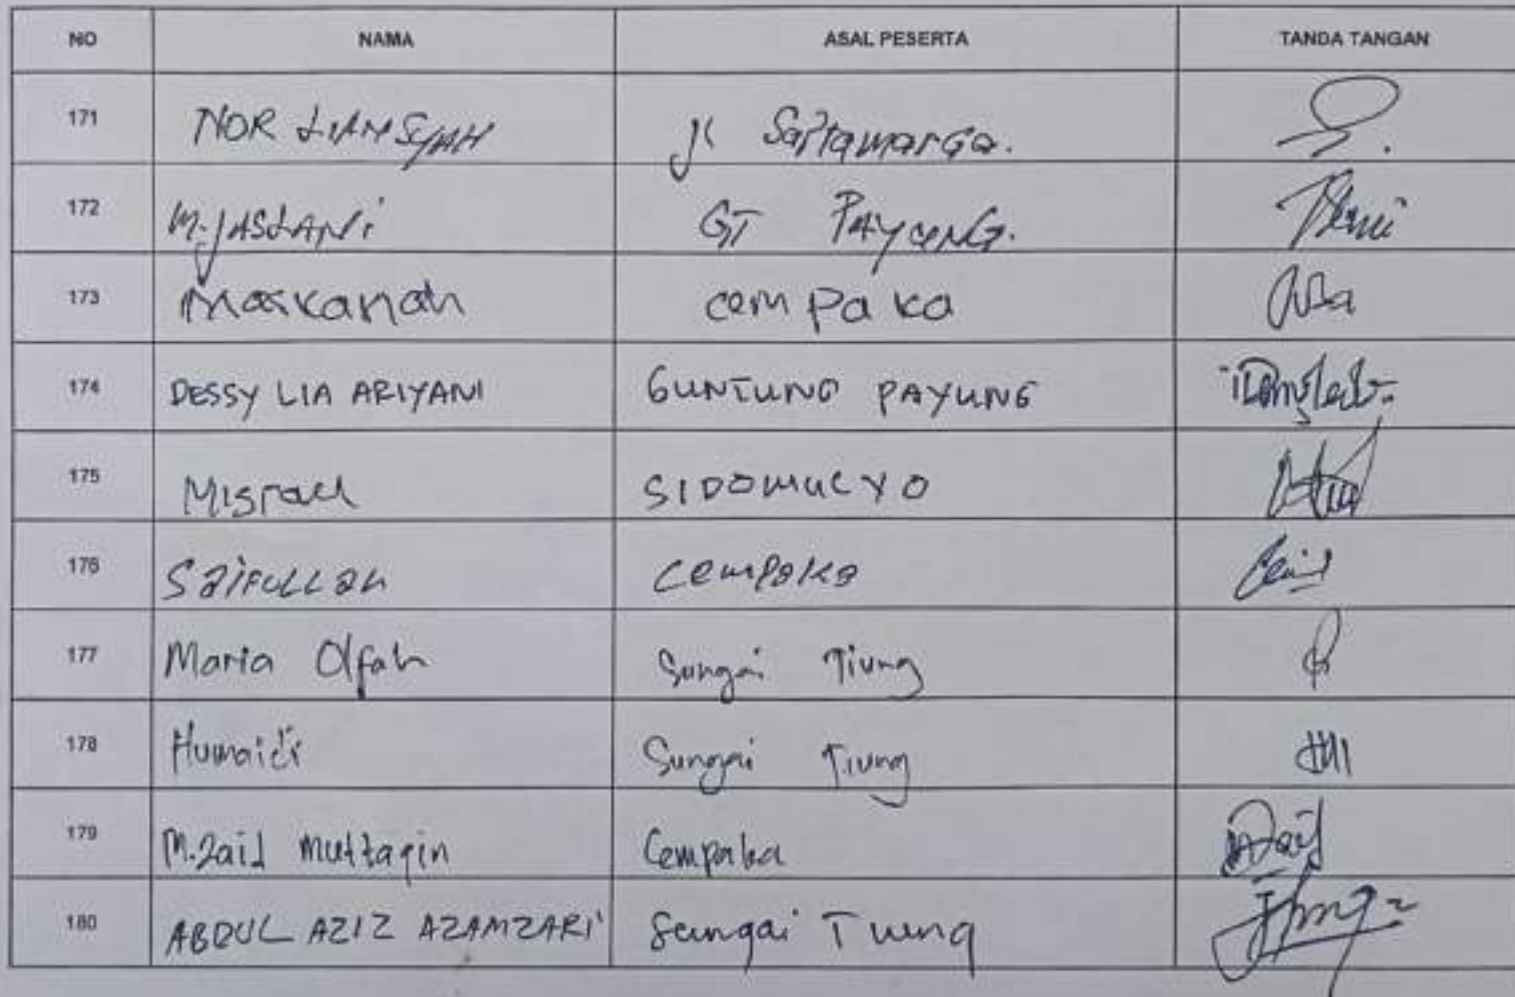 NO NAMA ASAL PESERTA TANDA TANGAN
171 NOR LIAMSYAH Jl Saptamarga.
172 M. JASLANi GT PAYUNG.
173 Maskanah cempaka
174 DESSY LIA ARIYANI GUNTUNG PAYUNG
175 SIDOMULYO
176 SaiFULLah cempaka
177 Maria Olfah Sungai Tiung
178 Humaidi Sungai Tiung
179 M. Zaid Muttaqin Cempaka
180 ABDUL AZIZ AZAMZARi Sungai Tiung